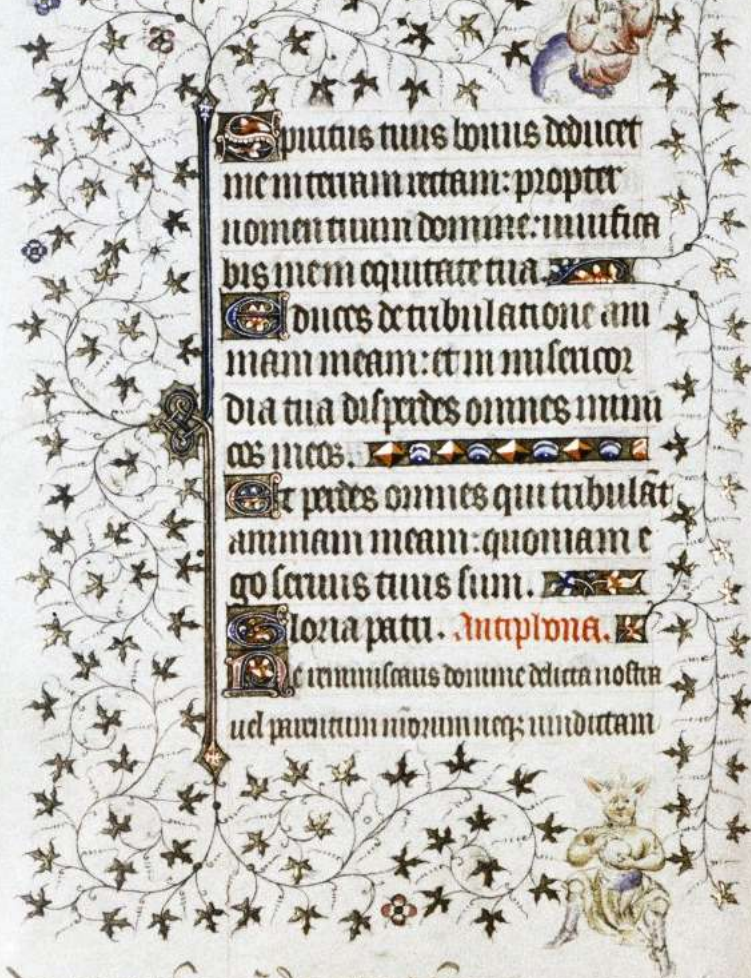 Spiritus tuus bonus deducet
me in terram rectam: propter
nomen tuum domine: uiuifica
bis me in equitate tua.
Educes de tribulatione ani
mam meam: et in misericor
dia tua disperdes omnes inimi
cos meos.
Et perdes omnes qui tribulāt
animam meam: quoniam e
go seruus tuus sum.
Gloria patri. Antiphona.
Ne reminiscaris domine delicta nostra
uel parentum nr̄orum neqꝫ uindictam